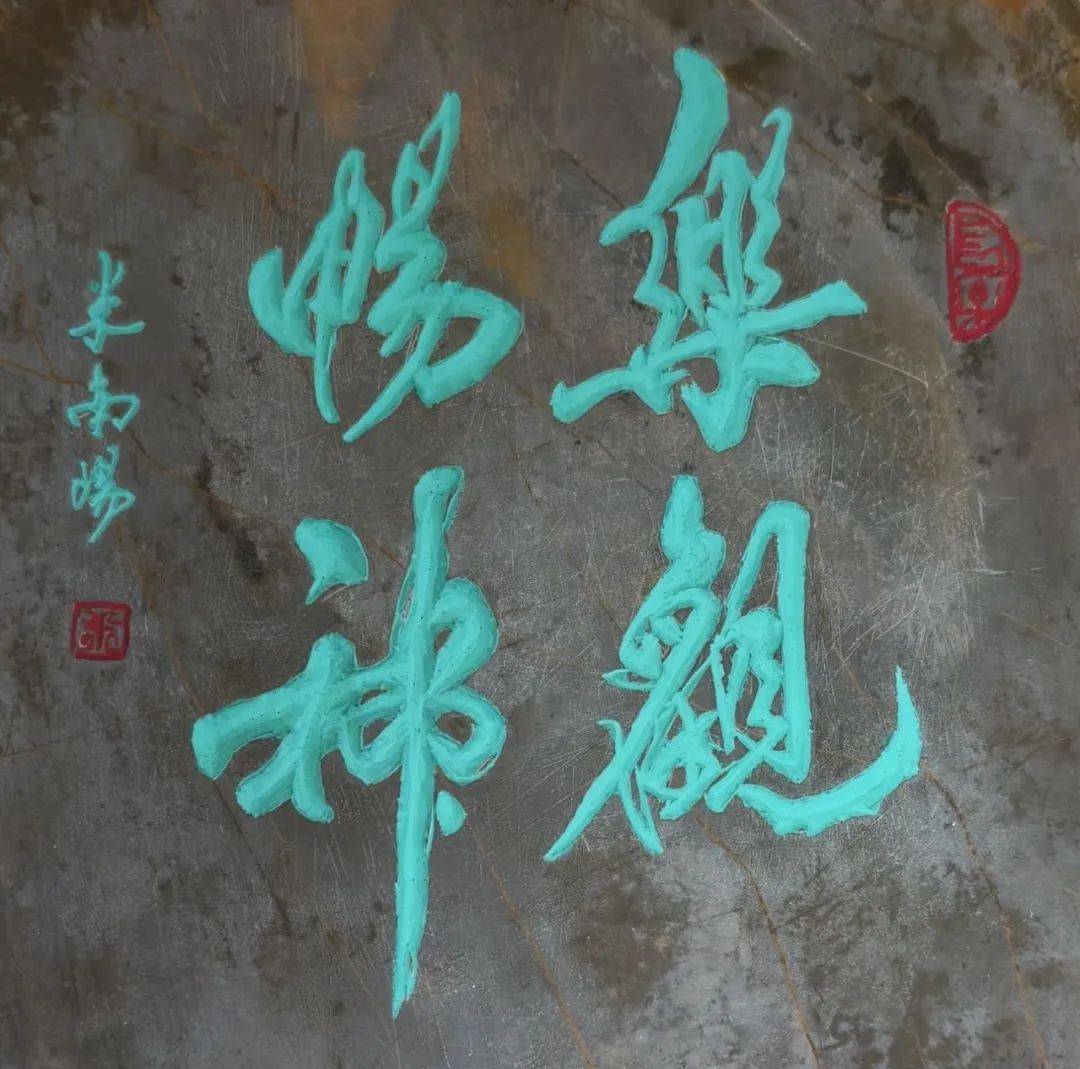 樂觀
暢神
米南陽